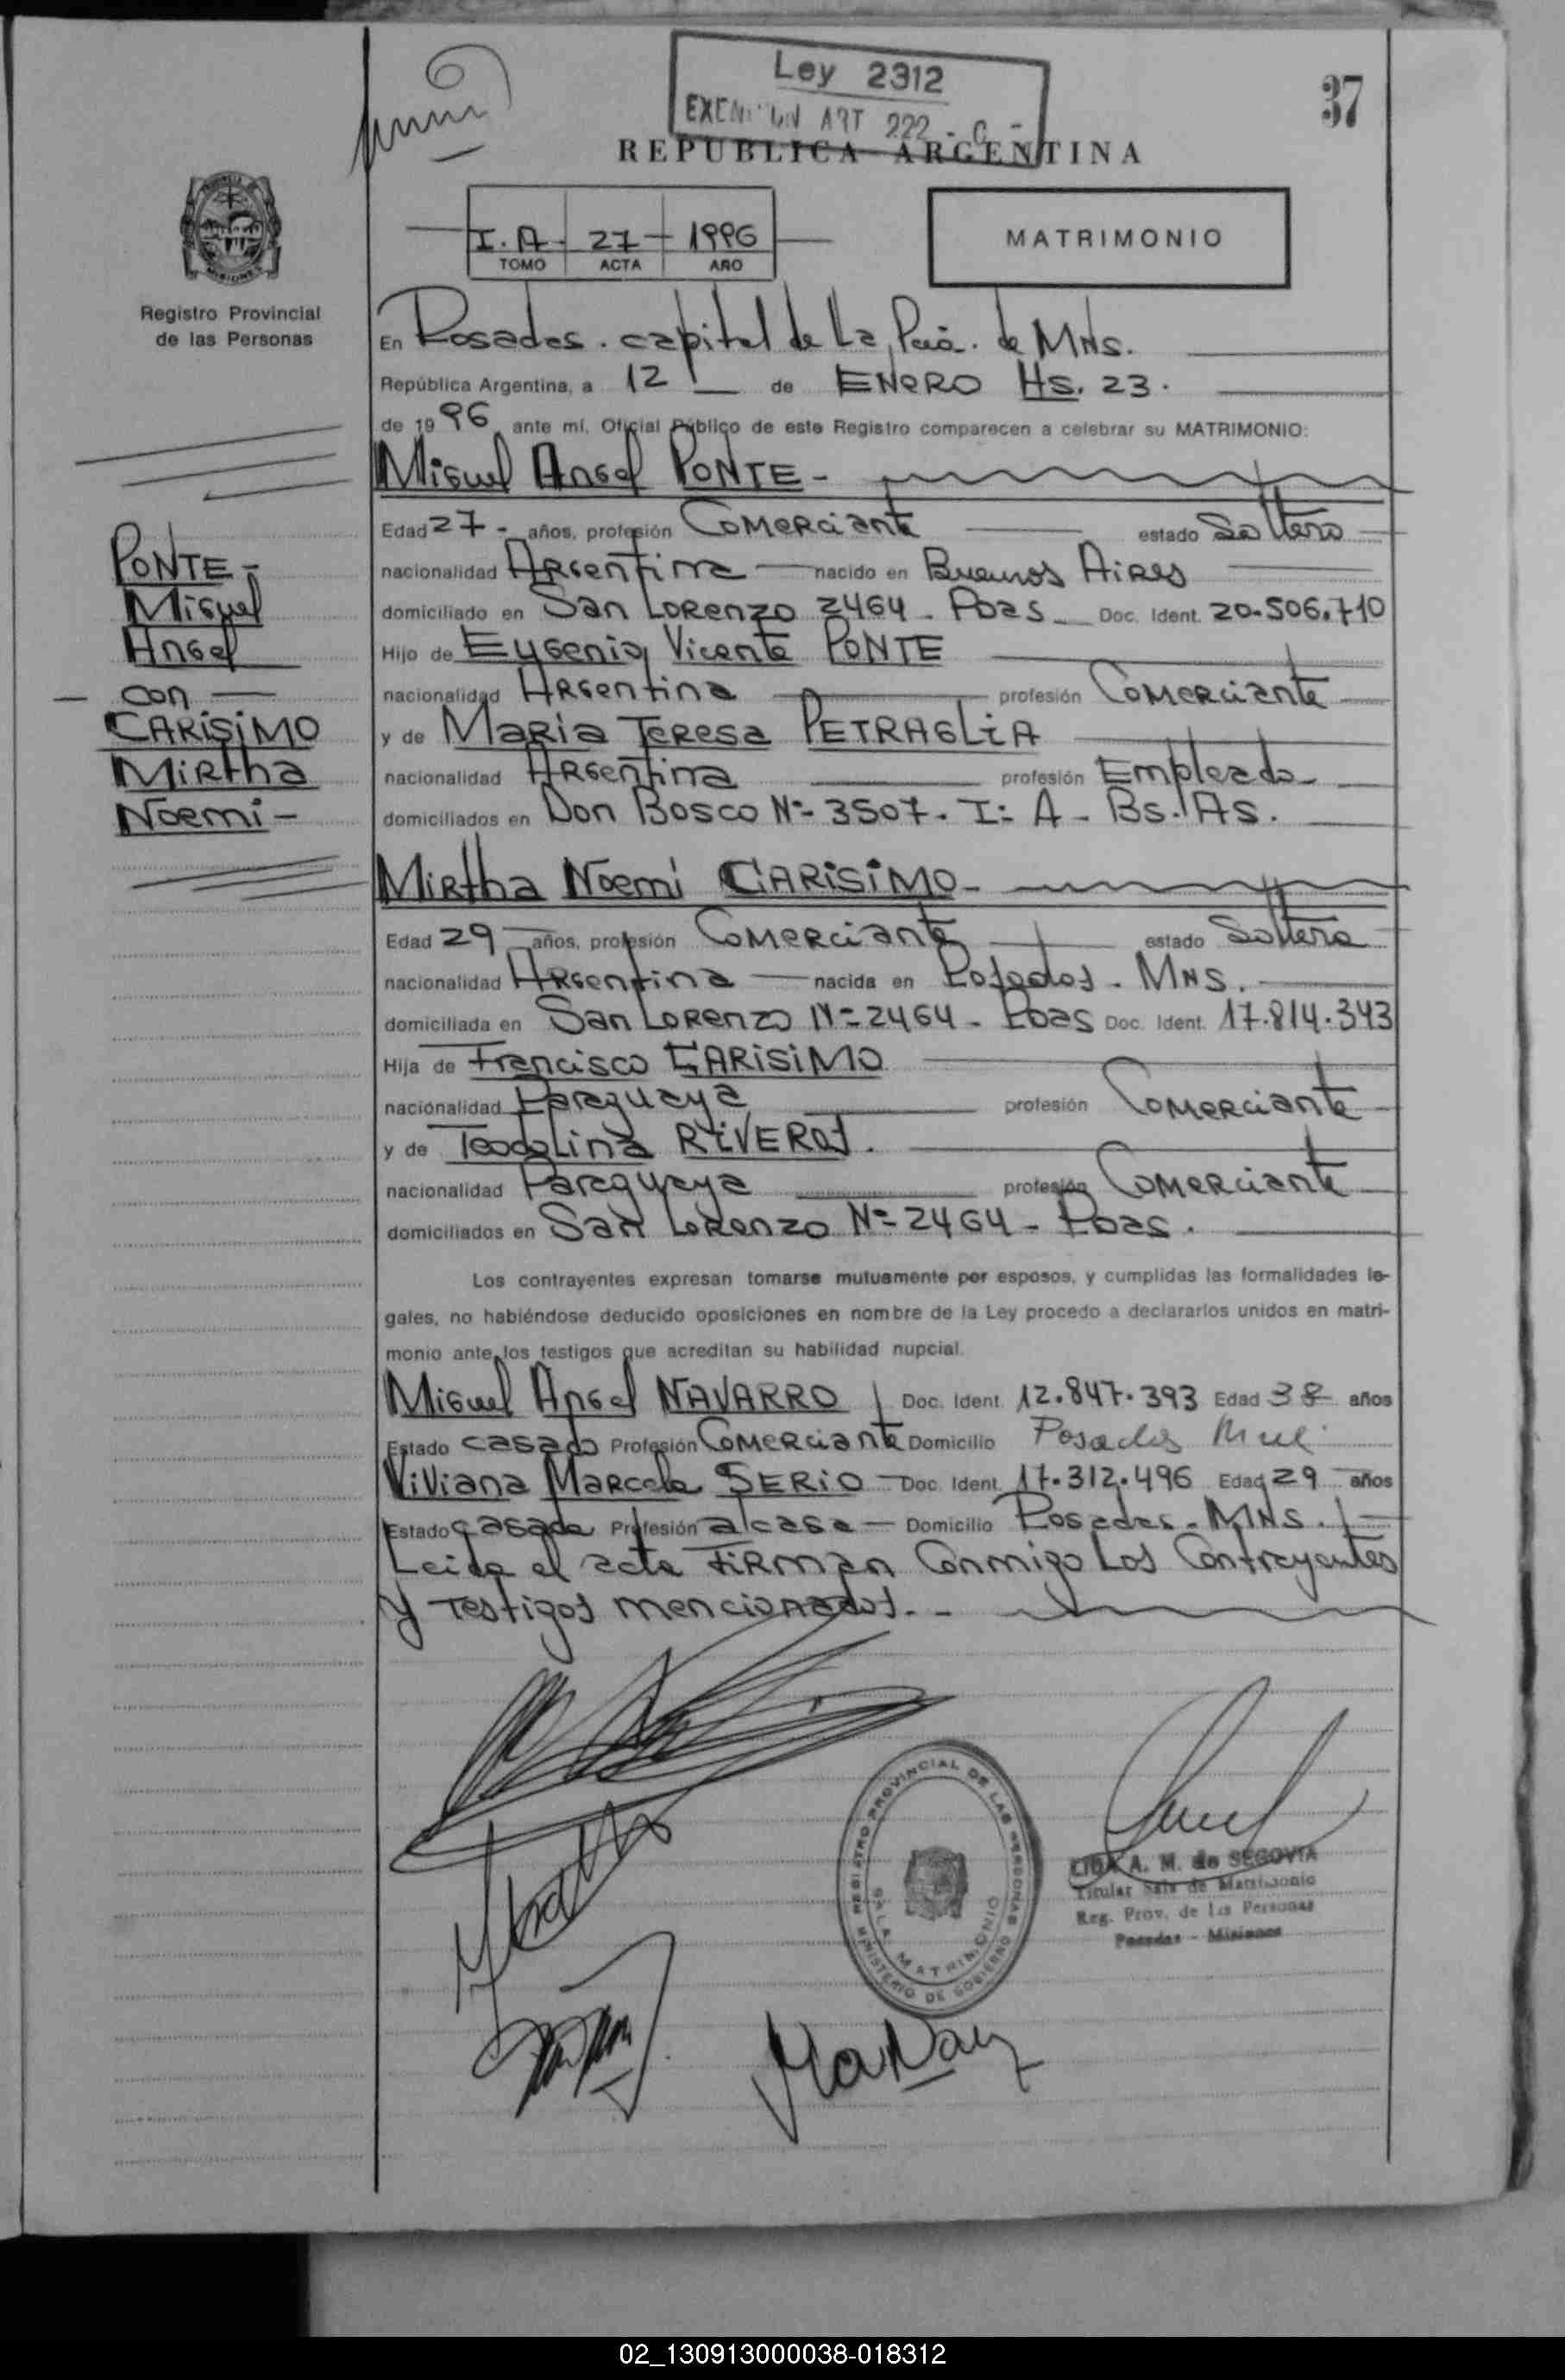 Ley 2312
EXENCION ART 222 - C -
37
REPUBLICA ARGENTINA
I. A - 27 - 1996
TOMO ACTA AÑO
MATRIMONIO
Registro Provincial
de las Personas
En Posadas. capital de La Pcia. de MNS.
República Argentina, a 12 de ENERO Hs. 23.
de 1996 ante mí, Oficial Público de este Registro comparecen a celebrar su MATRIMONIO:
Miguel Angel PONTE -
Edad 27 - años, profesión Comerciante estado Soltero
nacionalidad Argentina nacido en Buenos Aires
domiciliado en San Lorenzo 2464 - Pdas Doc. Ident. 20.506.710
Hijo de Eugenio Vicente PONTE
nacionalidad Argentina profesión Comerciante
y de Maria Teresa PETRAGLIA
nacionalidad Argentina profesión Empleada
domiciliados en Don Bosco Nº 3507. I: A - Bs. AS.
PONTE -
Miguel
Angel
- con -
CARISIMO
Mirtha
Noemi -
Mirtha Noemi CARISIMO -
Edad 29 años, profesión Comerciante estado Soltera
nacionalidad Argentina nacida en Posadas. MNS.
domiciliada en San Lorenzo Nº 2464 - Pdas Doc. Ident. 17.814.343
Hija de Francisco CARISIMO
nacionalidad Paraguaya profesión Comerciante
y de Teodolina RIVEROS.
nacionalidad Paraguaya profesión Comerciante
domiciliados en San Lorenzo Nº 2464 - Pdas.
Los contrayentes expresan tomarse mutuamente por esposos, y cumplidas las formalidades le-
gales, no habiéndose deducido oposiciones en nombre de la Ley procedo a declararlos unidos en matri-
monio ante los testigos que acreditan su habilidad nupcial.
Miguel Angel NAVARRO Doc. Ident. 12.847.393 Edad 38 años
Estado casado Profesión Comerciante Domicilio Posadas
Viviana Marcela SERIO Doc. Ident. 17.312.496 Edad 29 años
Estado casada Profesión a/casa Domicilio Posadas - MNS.
Leida el acta FIRMAN Conmigo Los Contrayentes
y Testigos mencionados. -
REGISTRO PROVINCIAL DE LAS PERSONAS
SALA MATRIMONIO
MINISTERIO DE GOBIERNO
LIDIA A. M. de SEGOVIA
Titular Sala de Matrimonio
Reg. Prov. de las Personas
Posadas - Misiones
02_130913000038-018312